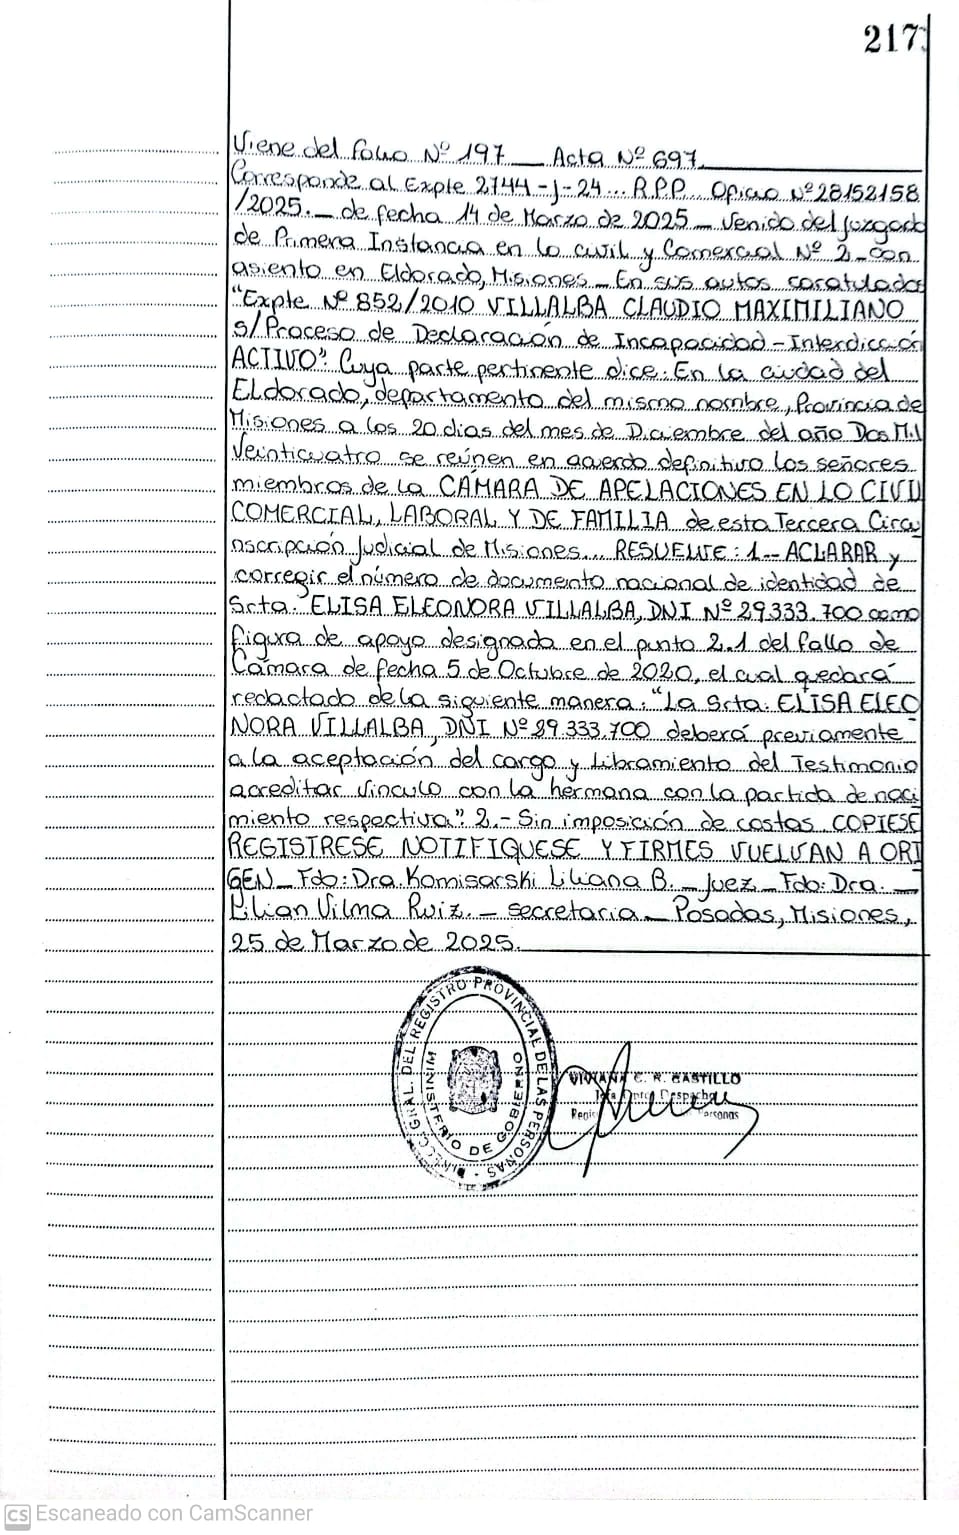 217
Viene del folio Nº 197 — Acta Nº 697.
Corresponde al Expte 2744-J-24... R.P.P. Oficio Nº 28152158
/2025.- de fecha 14 de Marzo de 2025 - Venido del Juzgado
de Primera Instancia en lo civil y Comercial Nº 2 - con
asiento en Eldorado, Misiones - En sus autos caratulados
"Expte Nº 852/2010 VILLALBA CLAUDIO MAXIMILIANO
s/Proceso de Declaración de Incapacidad - Interdicción
ACTIVO". Cuya parte pertinente dice: En la ciudad del
Eldorado, departamento del mismo nombre, Provincia de
Misiones a los 20 días del mes de Diciembre del año Dos Mil
Veinticuatro se reúnen en acuerdo definitivo los señores
miembros de la CÁMARA DE APELACIONES EN LO CIVIL
COMERCIAL, LABORAL Y DE FAMILIA de esta Tercera Circu
nscripción Judicial de Misiones... RESUELVE: 1.- ACLARAR y
corregir el número de documento nacional de identidad de
Srta. ELISA ELEONORA VILLALBA, DNI Nº 29.333.700 como
figura de apoyo designada en el punto 2.1 del fallo de
Cámara de fecha 5 de Octubre de 2020, el cual quedará
redactado de la siguiente manera: "La Srta. ELISA ELEO
NORA VILLALBA, DNI Nº 29.333.700 deberá previamente
a la aceptación del cargo y Libramiento del Testimonio
acreditar vinculo con la hermana con la partida de naci
miento respectiva". 2.- Sin imposición de costas. COPIESE
REGISTRESE NOTIFIQUESE Y FIRMES VUELVAN A ORI
GEN - Fdo: Dra. Komisarski Liliana B. - Juez - Fdo: Dra. -
Lilian Vilma Ruiz. - secretaria - Posadas, Misiones,
25 de Marzo de 2025.
DIRECC. GRAL. DEL REGISTRO PROVINCIAL DE LAS PERSONAS
MINISTERIO DE GOBIERNO
VIVIANA C. R. CASTILLO
Dpto. Despacho
Personas
CS Escaneado con CamScanner